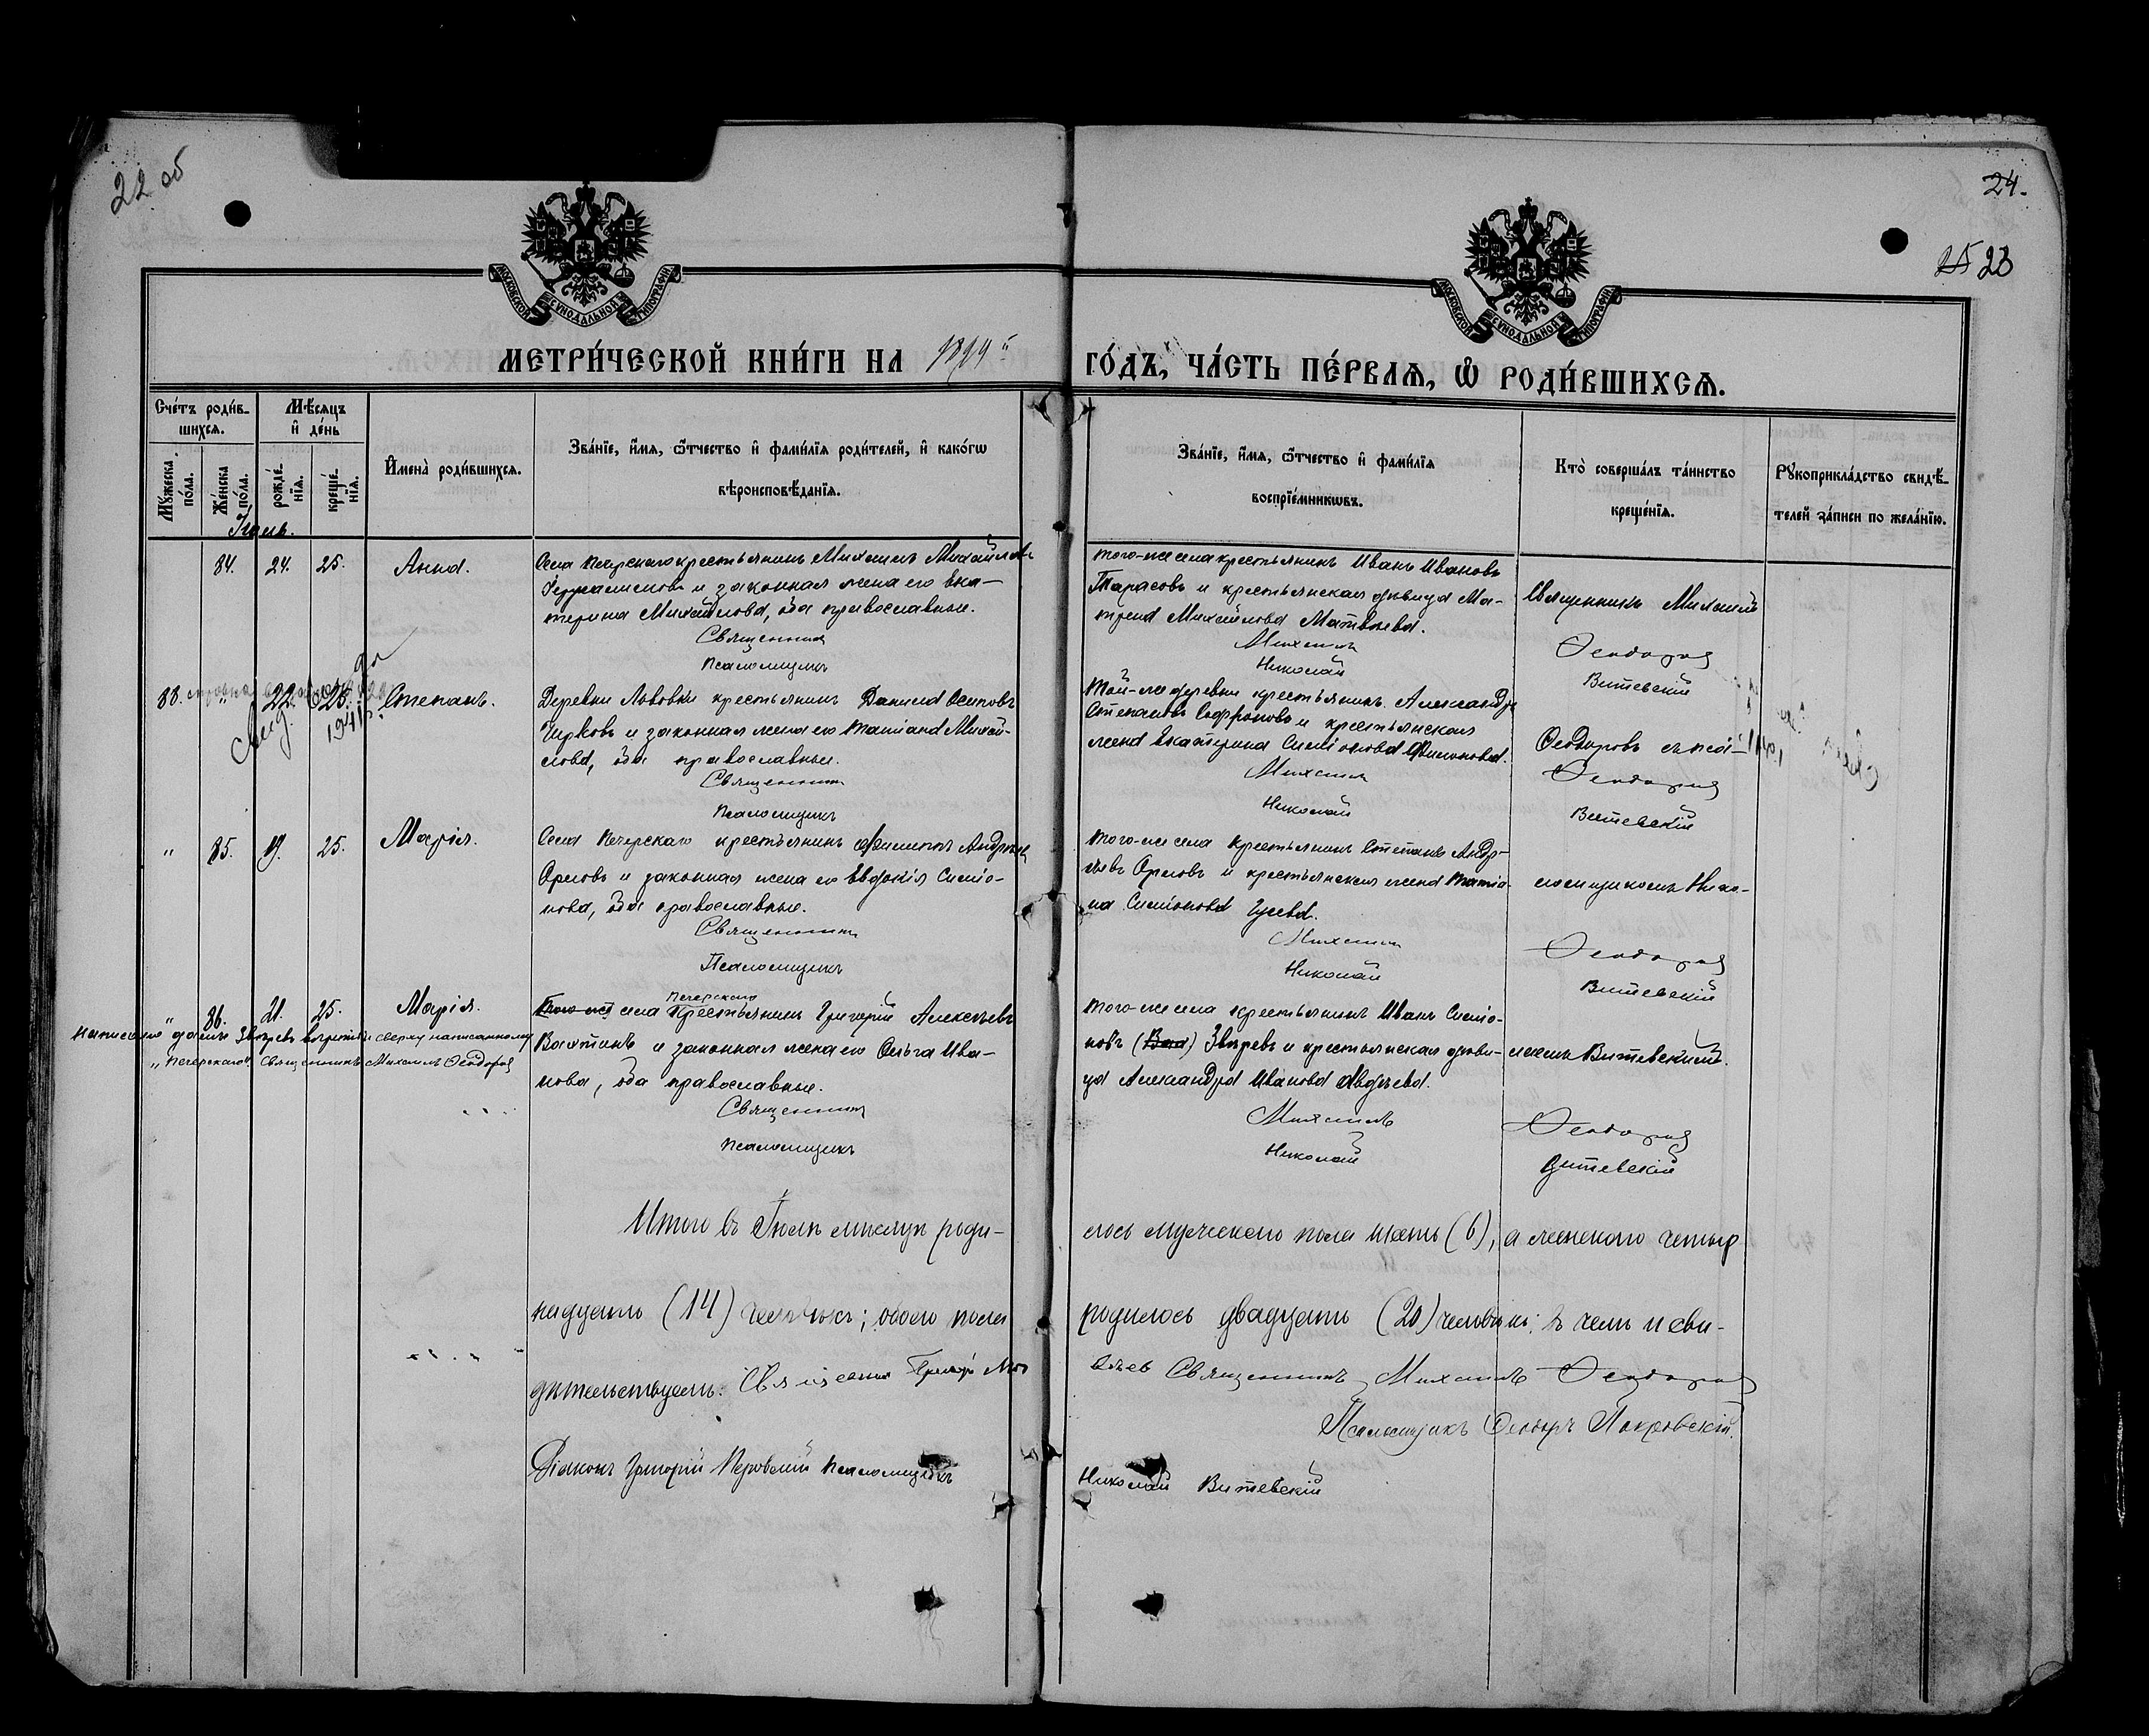 22 об
24.
25 23
МОСКОВСКОЙ СУНОДАЛЬНОЙ ТИПОГРАФІИ
МОСКОВСКОЙ СУНОДАЛЬНОЙ ТИПОГРАФІИ
МЕТРИ́ЧЕСКОЙ КНИ́ГИ НА
ГО́ДЪ, ЧА́СТЬ ПЕ́РВАѦ, Ѽ РОДИ́ВШИХСѦ.
Счéтъ роди́в-
шихсѧ.
Мѣ́сѧцъ
и҆ де́нь
Мꙋжеска по́ла.
Же́нска по́ла.
рожде́-
нїѧ.
креще́-
нїѧ.
И҆мена̀ роди́вшихсѧ.
Зва́нїе, и҆́мѧ, ѻ҆́тчество и҆ фами́лїѧ роди́телей, и҆ како́гѡ
вѣроисповѣ́данїѧ.
Зва́нїе, и҆́мѧ, ѻ҆́тчество и҆ фами́лїѧ
воспрїе́мникѡвъ.
Кто̀ соверша́лъ та́инство
креще́нїѧ.
Рꙋкоприкла́дство свидѣ́-
телей за́писи по жела́нїю.
Іюль.
84. 24. 25. Анна.
Села Печерскаго крестьянинъ Михаилъ Михайловъ
и законная жена его Ека-
терина Михайлова, оба православные.
Священникъ
Псаломщикъ
того-же села крестьянинъ Иванъ Ивановъ
Тарасовъ и крестьянская дѣвица Ма-
трена Михайлова Матвѣева.
Михаилъ
Николай
Священникъ Михаилъ
Ѳеодоровъ
Витевскій
88. " 22. 25. Степанъ.
Деревни Львовки крестьянинъ Даніилъ Осиповъ
Чирковъ и законная жена его Татіана Михай-
лова, оба православные.
Священникъ
Псаломщикъ
Той-же деревни крестьянинъ Александръ
Степановъ Софроновъ и крестьянская
жена Екатерина Симіонова Филиппова.
Михаилъ
Николай
Ѳеодоровъ съ пса-
Ѳеодоровъ
Витевскій
" 85. 19. 25. Марія.
Села Печерскаго крестьянинъ Филиппъ Андреевъ
Орловъ и законная жена его Евдокія Симіо-
нова, оба православные.
Священникъ
Псаломщикъ
того-же села крестьянинъ Степанъ Андр-
еевъ Орловъ и крестьянская жена Татіа-
на Симіонова Гусева.
Михаилъ
Николай
ломщикомъ Нико-
Ѳеодоровъ
Витевскій
" 86. 21. 25. Марія.
Того-же села Печерскаго крестьянинъ Григорій Алексѣевъ
Вахтинъ и законная жена его Ольга Ива-
нова, оба православные.
Священникъ
Псаломщикъ
того-же села крестьянинъ Иванъ Симіо-
новъ Звѣревъ и крестьянская дѣви-
ца Александра Иванова Авдѣева.
Михаилъ
Николай
лаемъ Витевскимъ.
Ѳеодоровъ
Витевскій
сверху написанному
„Печерскаго". Священникъ Михаилъ Ѳеодоровъ
Итого въ Іюлѣ мѣсяцѣ роди-
лось мужескаго пола шесть (6), а женскаго четыр
надцать (14) человѣкъ; обоего пола
родилось двадцать (20) человѣкъ; въ чемъ и сви-
дѣтельствуемъ: Священникъ
Священникъ Михаилъ Ѳеодоровъ
Псаломщикъ Ѳеодоръ Покровскій.
Діаконъ Григорій Псаломщикъ
Николай Витевскій